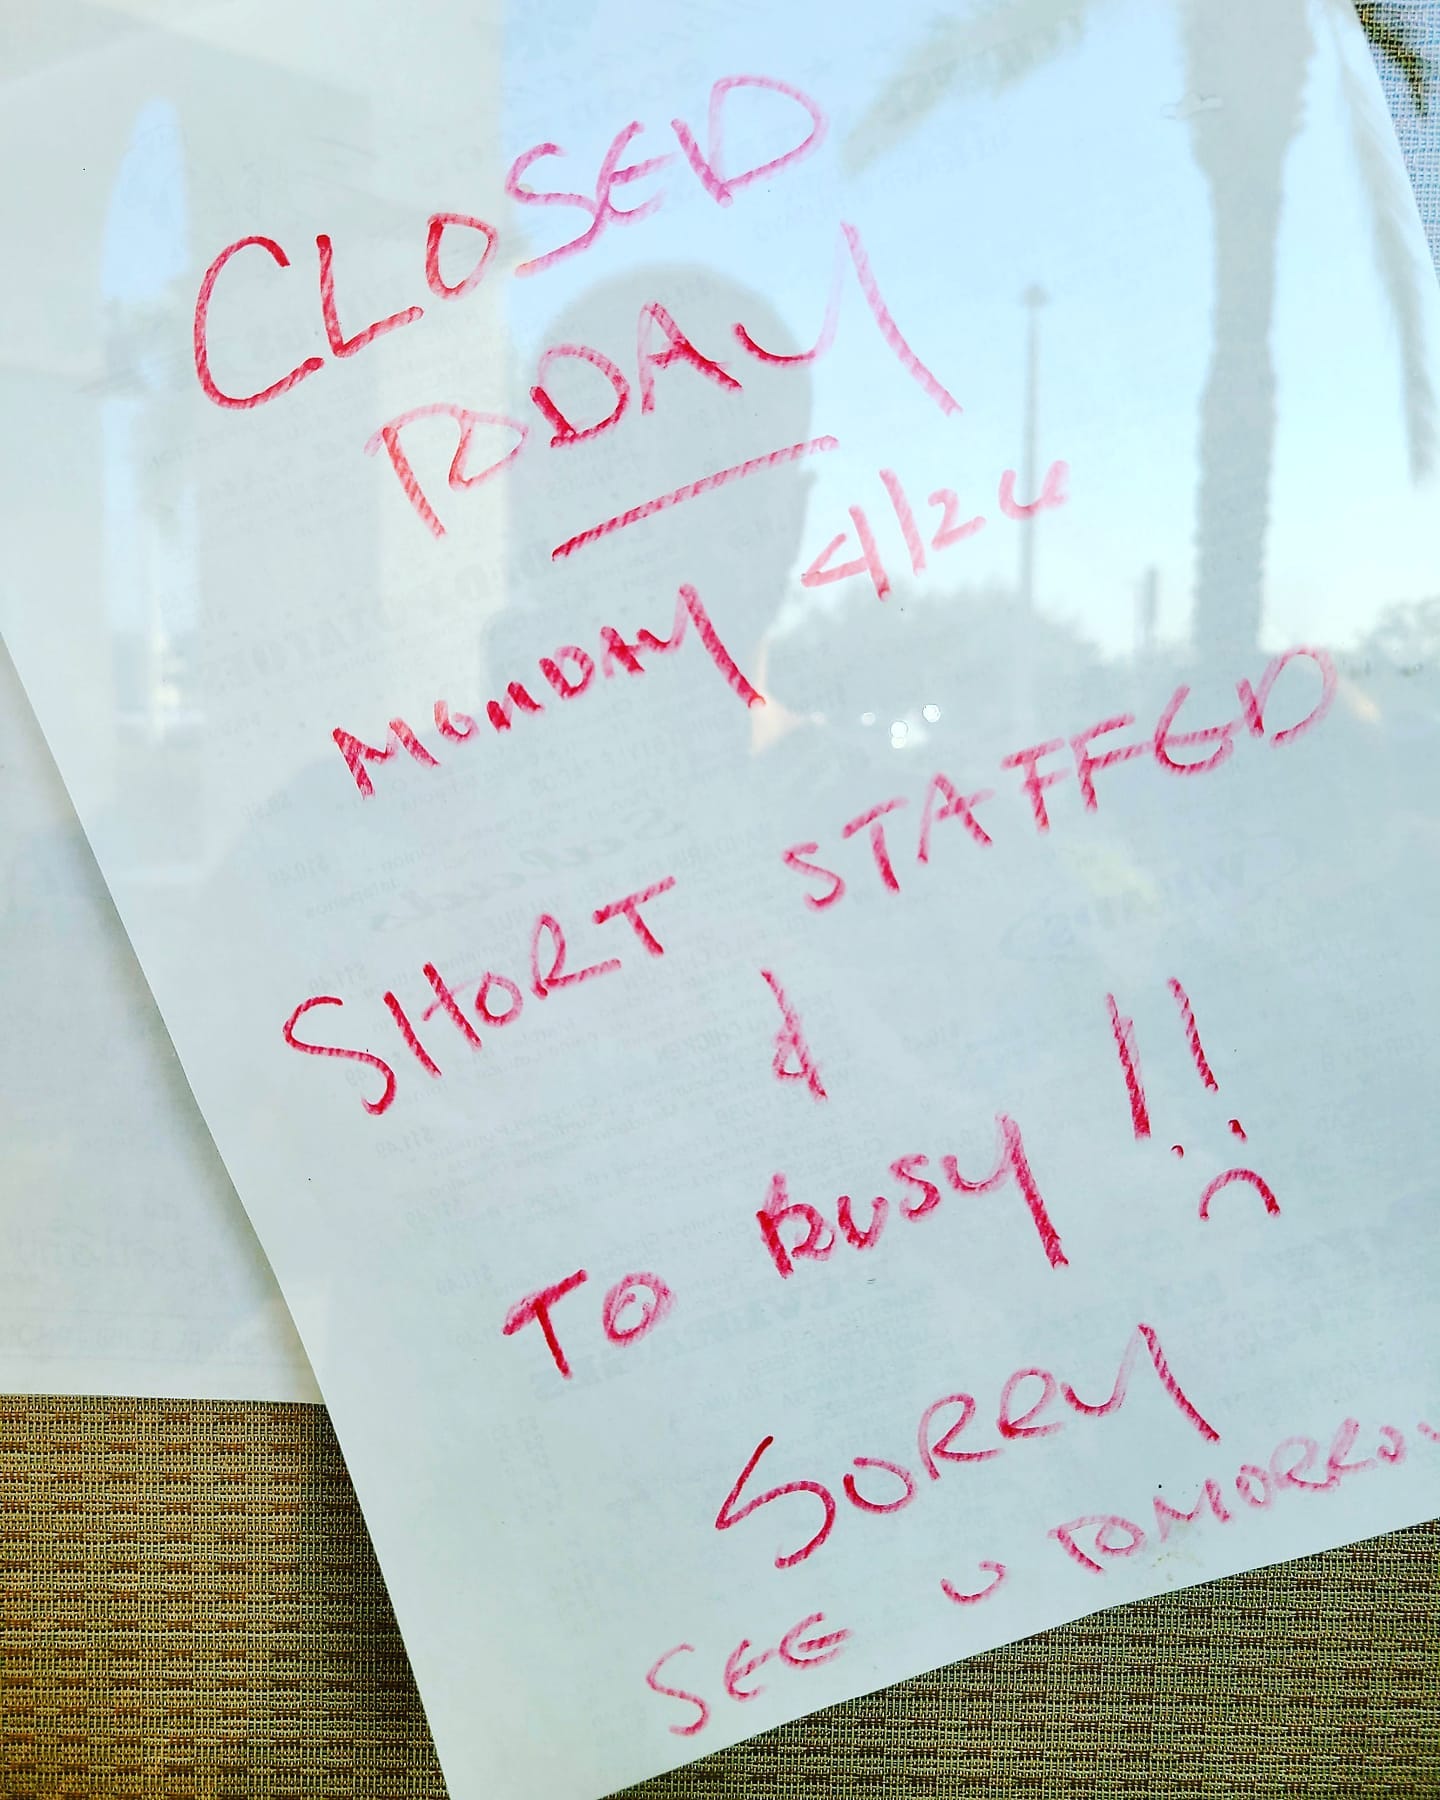 CLOSED
TODAY
MONDAY 4/26
SHORT STAFFED
&
TO BUSY !!
SORRY
SEE U TOMORROW